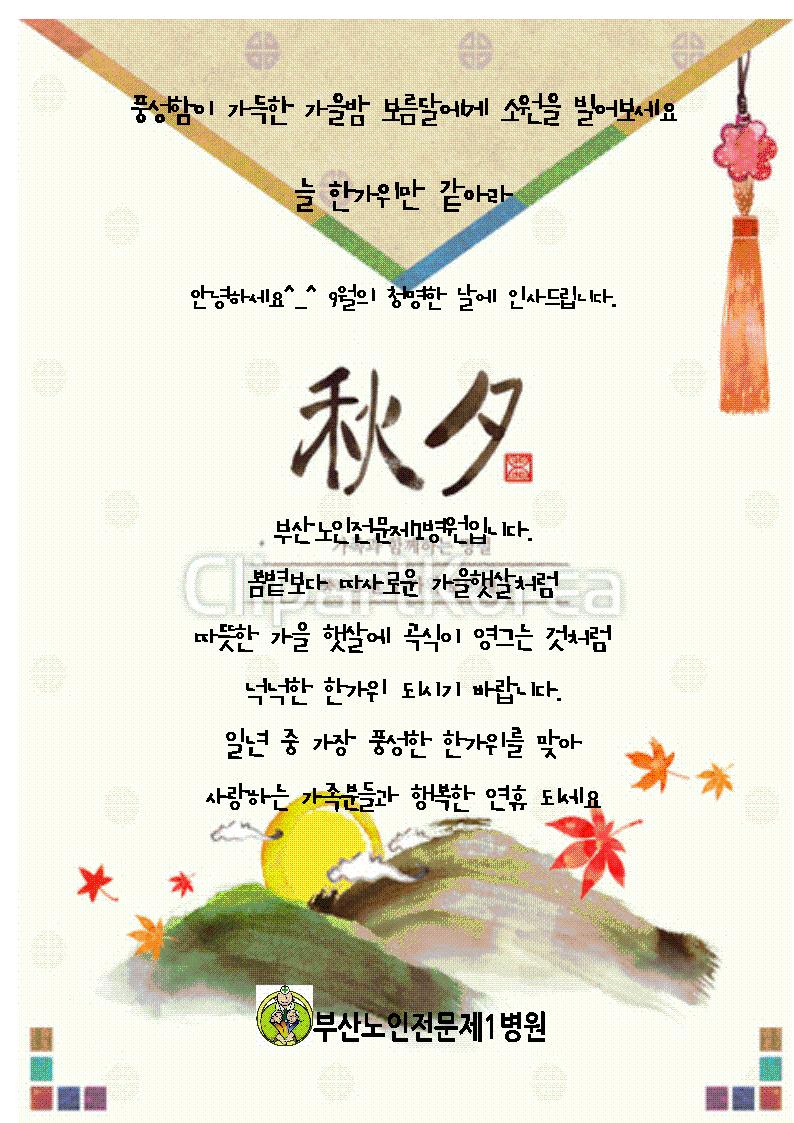 풍성함이 가득한 가을밤 보름달에게 소원을 빌어보세요
늘 한가위만 같아라
안녕하세요^_^ 9월의 청명한 날에 인사드립니다.
秋夕
부산노인전문제1병원입니다.
가족과 함께하는 명절
ClipartKorea
뽐볕보다 따사로운 가을햇살처럼
따뜻한 가을 햇살에 곡식이 영그는 것처럼
넉넉한 한가위 되시기 바랍니다.
일년 중 가장 풍성한 한가위를 맞아
사랑하는 가족분들과 행복한 연휴 되세요
부산노인전문제1병원